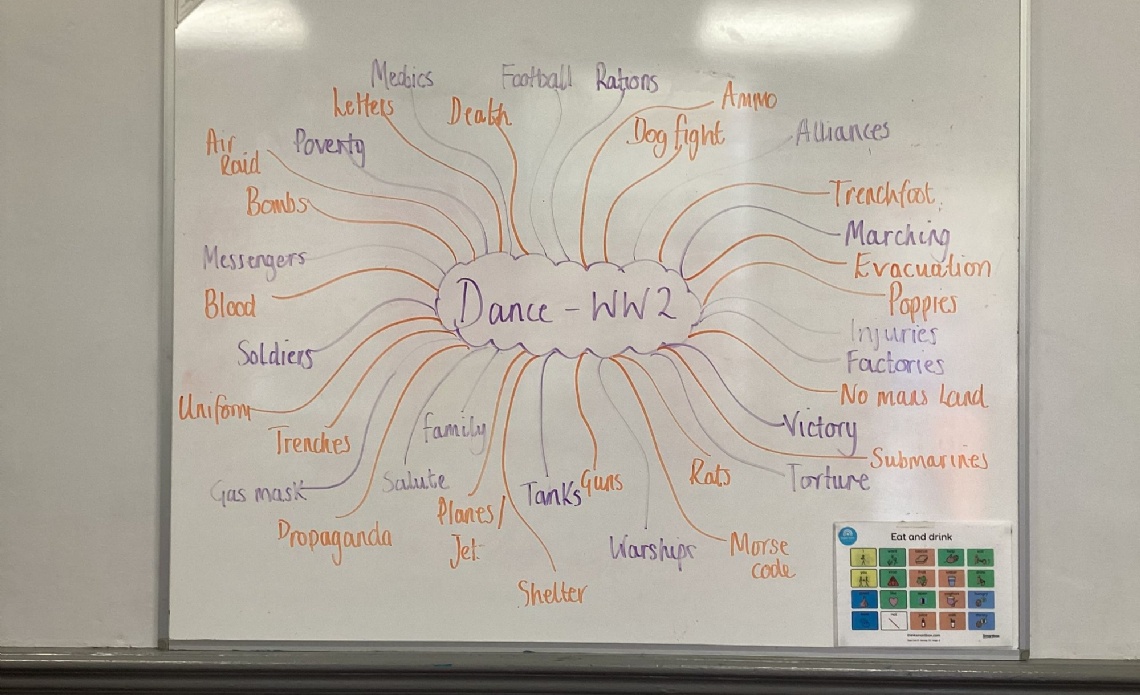 Medics
Football
Rations
Letters
Death
Ammo
Dog fight
Alliances
Air
Raid
Poverty
Bombs
Trenchfoot
Marching
Messengers
Evacuation
Blood
Poppies
Dance - WW2
Injuries
Soldiers
Factories
No mans Land
Uniform
Trenches
family
Victory
Submarines
Gas mask
Salute
Planes/
Jet
Tanks
Guns
Rats
Torture
Propaganda
Warships
Morse
code
Shelter
Eat and drink